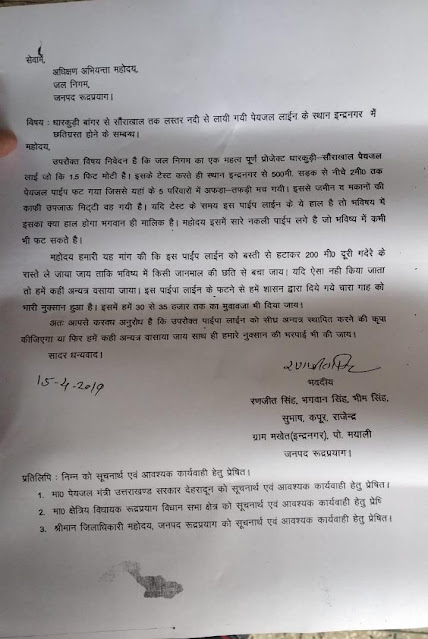 सेवामें,
अधिक्षण अभियन्ता महोदय,
जल निगम,
जनपद रूद्रप्रयाग।
विषय : धारकुड़ी बांगर से सौंराखाल तक लस्तर नदी से लायी गयी पेयजल लाईन के स्थान इन्द्रनगर में
छतिग्रस्त होने के सम्बन्ध।
महोदय,
उपरोक्त विषय निवेदन है कि जल निगम का एक महत्व पूर्ण प्रोजेक्ट धारकुड़ी–सौंराखाल पेयजल
लाई जो कि 1.5 फिट मोटी है। इसके टेस्ट करते ही स्थान इन्द्रनगर से 500मी. सड़क से नीचे 2मी0 तक
पेयजल पाईप फट गया जिससे यहां के 5 परिवारों में अफडा–तफड़ी मच गयी। इससे जमीन य मकानों की
काफी उपजाऊ मिट्टी वह गयी है। यदि टेस्ट के समय इस पाईप लाईन के ये हाल है तो भविष्य में
इसका क्या हाल होगा भगवान ही मालिक है। महोदय इसमें सारे नकली पाईप लगे है जो भविष्य में कभी
भी फट सकते है।
महोदय हमारी यह मांग की कि इस पाईप लाईन को बस्ती से हटाकर 200 मी0 दूरी गदेरे के
रास्ते ले जाया जाय ताकि भविष्य में किसी जानमाल की छति से बचा जाय। यदि ऐसा नही किया जाता
तो हमें कही अन्यत्र वसाया जाय। इस पाईपा लाईन के फटने से हमें शासन द्वारा दिये गये चारा गाह को
भारी नुक्सान हुआ है। इसमें हमें 30 से 35 हजार तक का मुवावजा भी दिया जाय।
अतः आपसे करवध अनुरोध है कि उपरोक्त पाईपा लाईन को सीघ्र अन्यत्र स्थापित करने की कृपा
कीजिएगा या फिर हमें कही अन्यत्र वासाया जाय साथ ही हमारे नुक्सान की भरपाई भी की जाय।
सादर धन्यवाद।
रणजीत सिंह
15-4-2019
भवदीय
रणजीत सिंह, भगवान सिंह, भीम सिंह,
सुभाष, कपूर, राजेन्द्र
ग्राम मखेत(इन्द्रनगर), पो. मयाली
जनपद रूद्रप्रयाग।
प्रतिलिपि : निम्न को सूचनार्थ एवं आवश्यक कार्यवाही हेतु प्रेषित।
1. मा0 पेयजल मंत्री उत्तराखण्ड सरकार देहरादून को सूचनार्थ एवं आवश्यक कार्यवाही हेतु प्रेषित।
2. मा0 क्षेत्रिय विधायक रूद्रप्रयाग विधान सभा क्षेत्र को सूचनार्थ एवं आवश्यक कार्यवाही हेतु प्रेषि
3. श्रीमान जिलाधिकारी महोदय, जनपद रूद्रप्रयाग को सूचनार्थ एवं आवश्यक कार्यवाही हेतु प्रेषित।